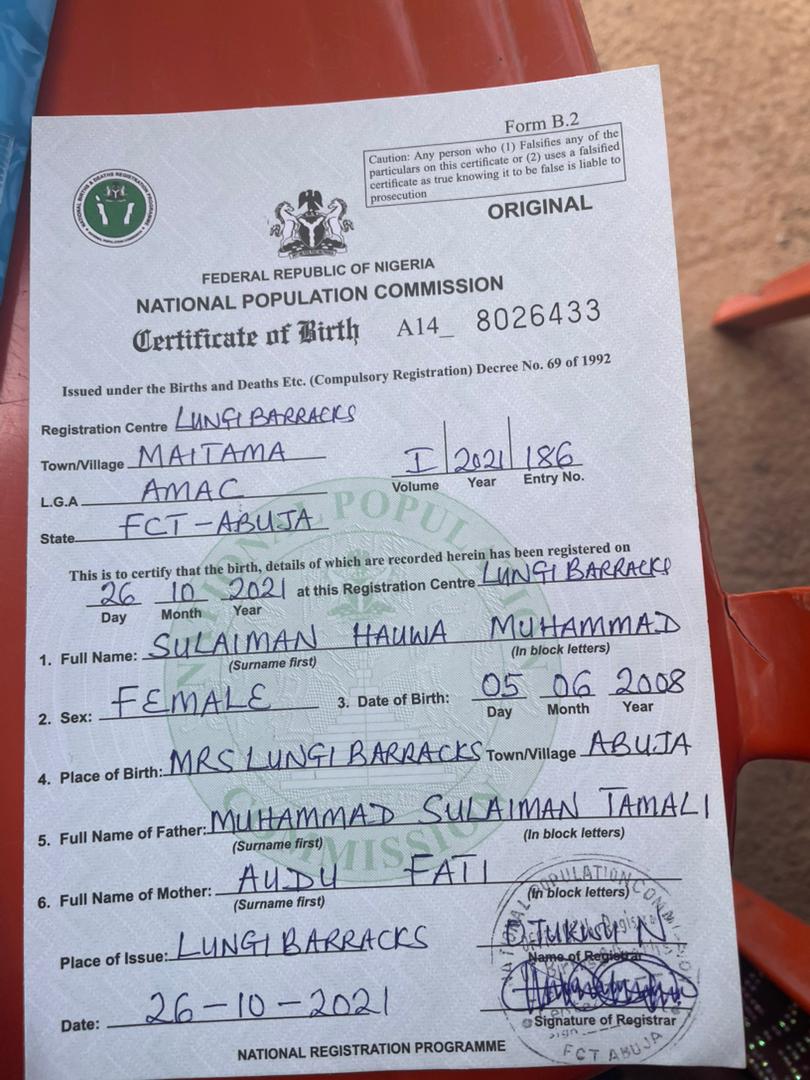 Form B.2
Caution: Any person who (1) Falsifies any of the
particulars on this certificate or (2) uses a falsified
certificate as true knowing it to be false is liable to
prosecution
ORIGINAL
NATIONAL BIRTHS & DEATHS REGISTRATION PROGRAMME
NATIONAL POPULATION COMMISSION
FEDERAL REPUBLIC OF NIGERIA
NATIONAL POPULATION COMMISSION
Certificate of Birth A14_ 8026433
Issued under the Births and Deaths Etc. (Compulsory Registration) Decree No. 69 of 1992
Registration Centre LUNGI BARRACKS
Town/Village MAITAMA
I 2021 186
Volume Year Entry No.
L.G.A AMAC
State FCT-ABUJA
This is to certify that the birth, details of which are recorded herein has been registered on
26 10 2021 at this Registration Centre LUNGI BARRACKS
Day Month Year
1. Full Name: SULAIMAN HAUWA MUHAMMAD
(Surname first) (In block letters)
2. Sex: FEMALE 3. Date of Birth: 05 06 2008
Day Month Year
4. Place of Birth: MRS LUNGI BARRACKS Town/Village ABUJA
5. Full Name of Father: MUHAMMAD SULAIMAN TAMALI
(Surname first) (In block letters)
6. Full Name of Mother: AUDU FATI
(Surname first) (In block letters)
Place of Issue: LUNGI BARRACKS
Name of Registrar
Date: 26-10-2021
Signature of Registrar
NATIONAL REGISTRATION PROGRAMME
NATIONAL POPULATION COMMISSION
FCT ABUJA